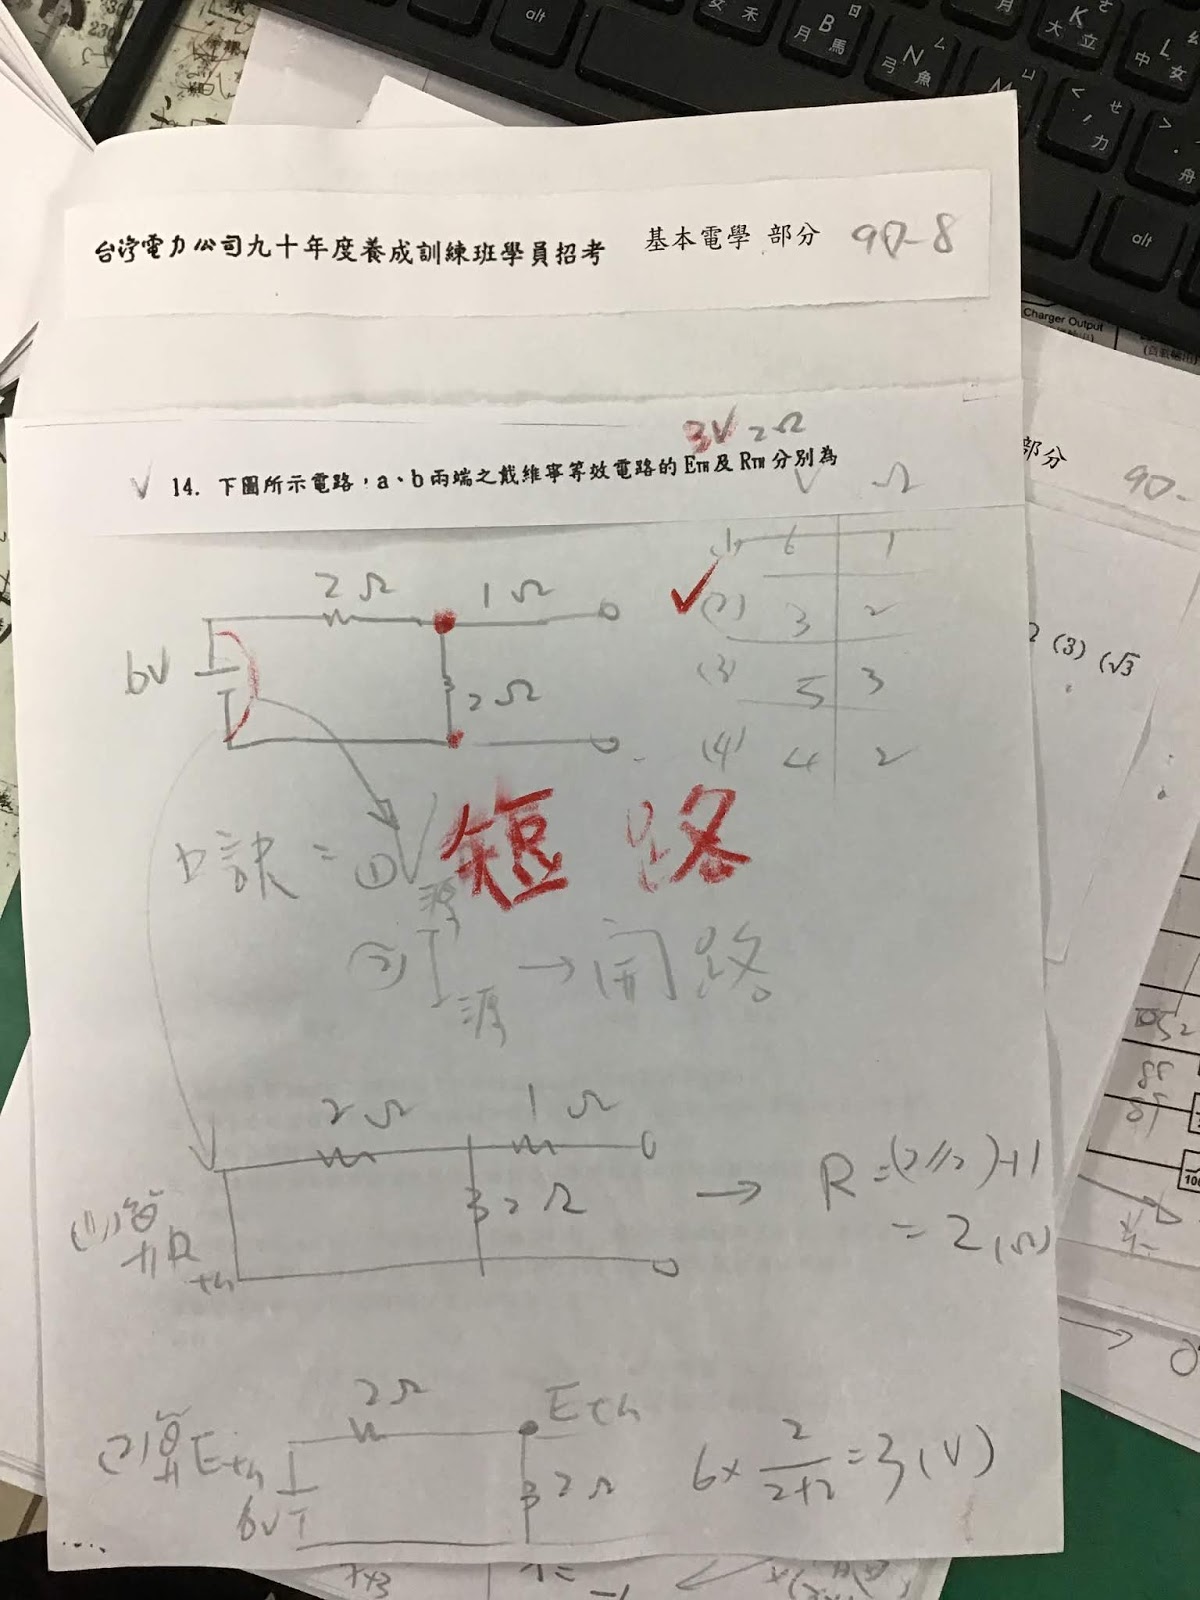 台灣電力公司九十年度養成訓練班學員招考 基本電學 部分 90-8
3V 2Ω
√ 14. 下圖所示電路，a、b兩端之戴維寧等效電路的 ETH 及 RTH 分別為
V Ω
(1) 6 1
(2) 3 2
(3) 5 3
(4) 4 2
2Ω 1Ω
6V
2Ω
口訣 = ① V源 短路
② I源 → 開路
2Ω 1Ω
(1)算Rth
2Ω
→ R=(2//2)+1
=2(Ω)
2Ω
Eth
(2)算Eth
6V
2Ω
6×2/(2+2)=3(V)
Charger Output
部分
90-
(3) (√3
alt
B
月
馬
N
弓
魚
K
大
立
L
中
女
力
舟
alt